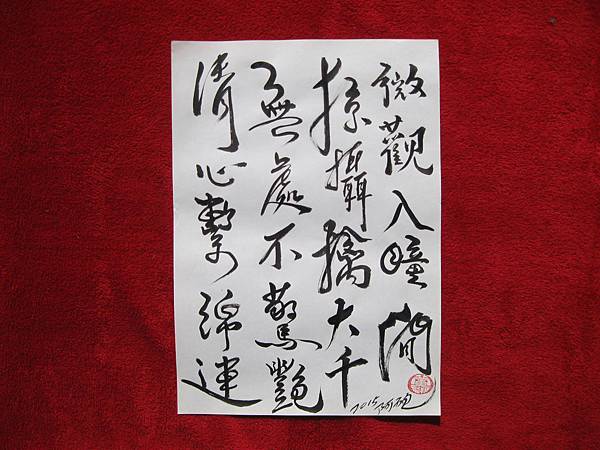 微觀入瞳間
掠攝擒大千
無處不驚艷
清心繫綿連
2015